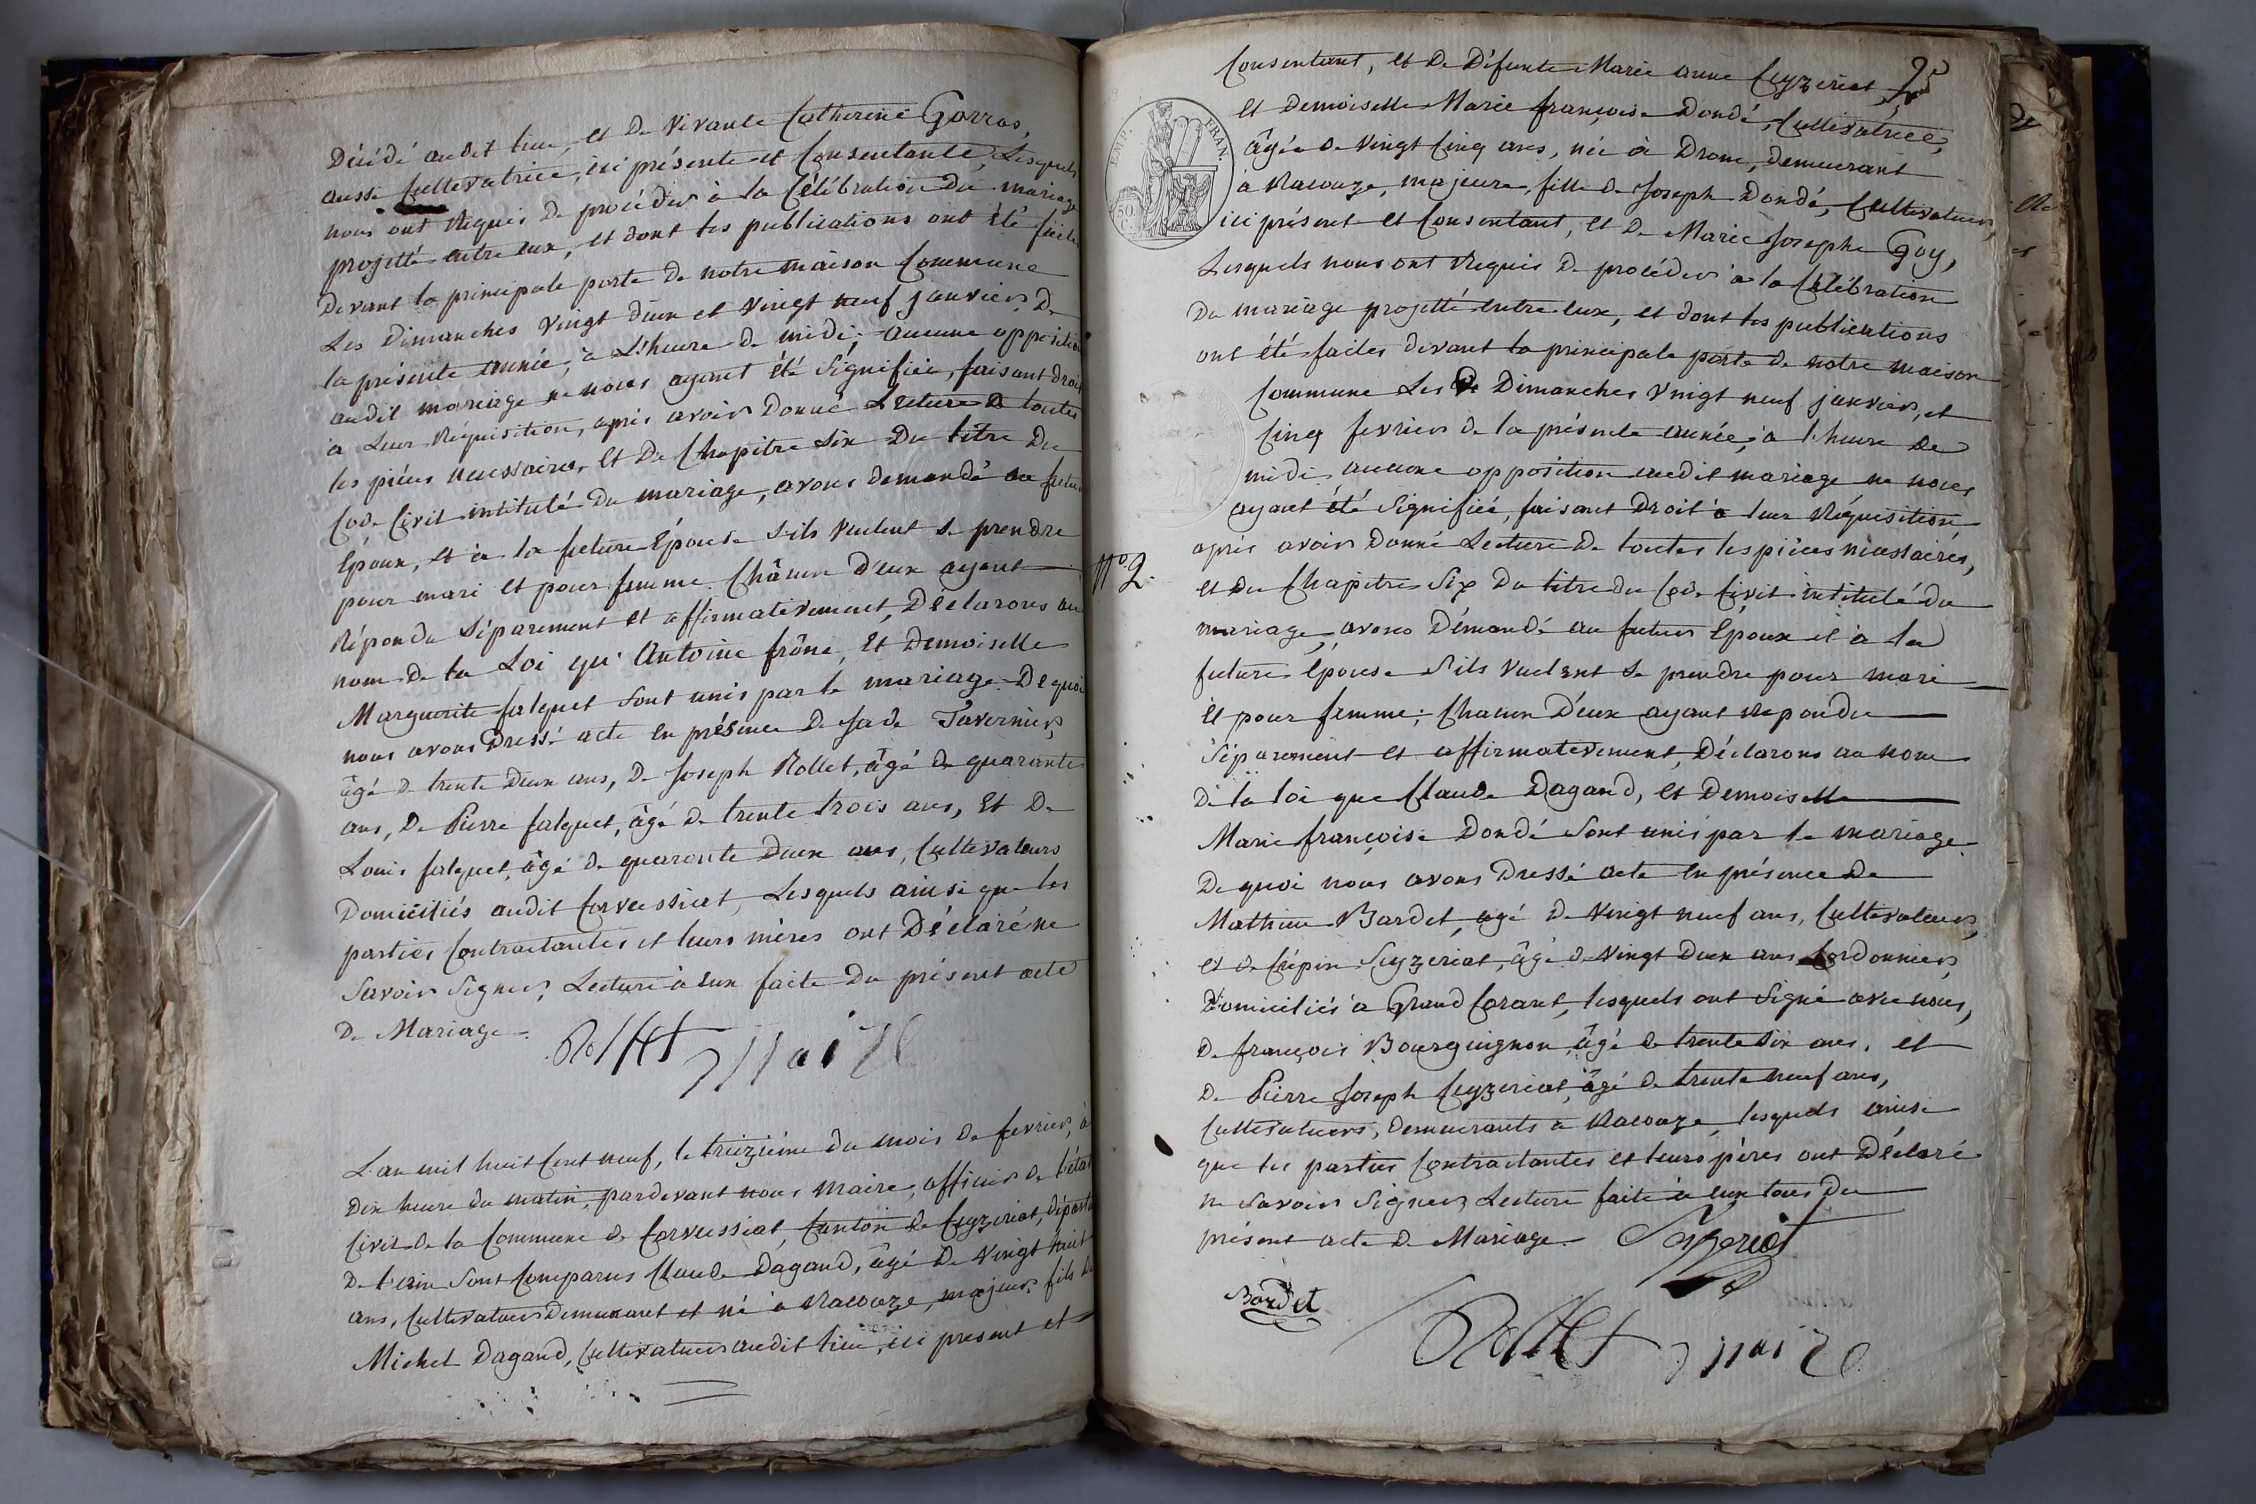 Décédé audit lieu, et de vivante Catherine Gorras,
aussi Cultivatrice, ici présente et Consentante, Lesquels
nous ont Requis de procéder à la Célébration du mariage
projetté entre eux, et dont les publications ont été faites
devant la principale porte de notre maison Commune
Les dimanches vingt deux et vingt neuf janvier, de
la présente année, à L'heure de midi; aucune opposition
audit mariage ne nous ayant été Signifiée, faisant droit
à Leur Réquisition, après avoir donné Lecture de toutes
les pièces necessaires, et du Chapitre Six du titre du
Code Civil intitulé du mariage, avons demandé au futur
Epoux, et à la future Epouse s'ils veulent se prendre
pour mari et pour femme. Châcun d'eux ayant
Répondu Séparement et affirmativement, Déclarons au
nom de la Loi qu'Antoine frône, et Demoiselle
Marguerite falquet Sont unis par le mariage. De quoi
nous avons Dressé acte en présence de Tavernier,
âgé de trente deux ans, de Joseph Rollet, âgé de quarante
ans, de Pierre falquet, âgé de trente trois ans, et De
Louis falquet, âgé de quarante deux ans, Cultivateurs
Domiciliés audit Corveissiat, Lesquels ainsi que les
parties Contractantes et leurs mères ont Déclaré ne
Savoir Signer, Lecture à eux faite du présent acte
de Mariage.
Rollet maire
L'an mil huit Cent neuf, le treizième du mois de fevrier, à
dix heure du matin, pardevant nous maire, officier de l'état
Civil de la Commune de Corveissiat, Canton de Ceyzeriat, départt
de l'ain Sont Comparus Claude Dagand, âgé De vingt huit
ans, Cultivateur demeurant et né à Racouze, majeur fils de
Michel Dagand, Cultivateur audit lieu, ici present et
25
Consentant, et de Défunte Marie anne Ceyzeriat,
et demoiselle Marie françoise Dondé, Cultivatrice,
EMP. FRAN.
50
âgée de vingt Cinq ans, née à Drom, demeurant
à Racouze, majeure, fille de Joseph Dondé, Cultivateur,
ici présent et Consentant, et de Marie Josephe Goy,
Lesquels nous ont Requis de procéder à la Célébration
Du mariage projetté entre eux, et dont les publications
ont été faites devant la principale porte de notre maison
Commune Les Dimanches vingt neuf janvier, et
Cinq fevrier de la présente année, à l'heure de
midi, aucune opposition audit mariage ne nous
ayant été Signifiée, faisant Droit à leur Réquisition
après avoir Donné Lecture de toutes les pièces necessaires,
N° 2.
et du Chapitre Six du titre du Code Civil intitulé du
mariage, avons Démandé au futur Epoux et à la
future Epouse S'ils veulent se prendre pour mari
et pour femme; Chacun D'eux ayant Repondu
Séparement et affirmativement, Déclarons au nom
De la loi que Claude Dagand, et Demoiselle
Marie françoise Dondé Sont unis par le mariage.
De quoi nous avons Dressé acte en présence de
Mathieu Bardet, agé de vingt neuf ans, Cultivateur,
et de Crépin Seyzeriat, âgé de vingt deux ans Cordonnier,
Domiciliés à Grand Corant, lesquels ont Signé avec nous,
De françois Bourguignon, âgé de trente Six ans, et
de Pierre Joseph Ceyzeriat, âgé de trente neuf ans,
Cultivateurs, demeurants à Racouze, lesquels ainsi
que les parties Contractantes et leurs pères ont Déclaré
ne Savoir Signer, Lecture faite à eux tous du
présent acte de Mariage. Seyzeriat
Bardet
Rollet maire